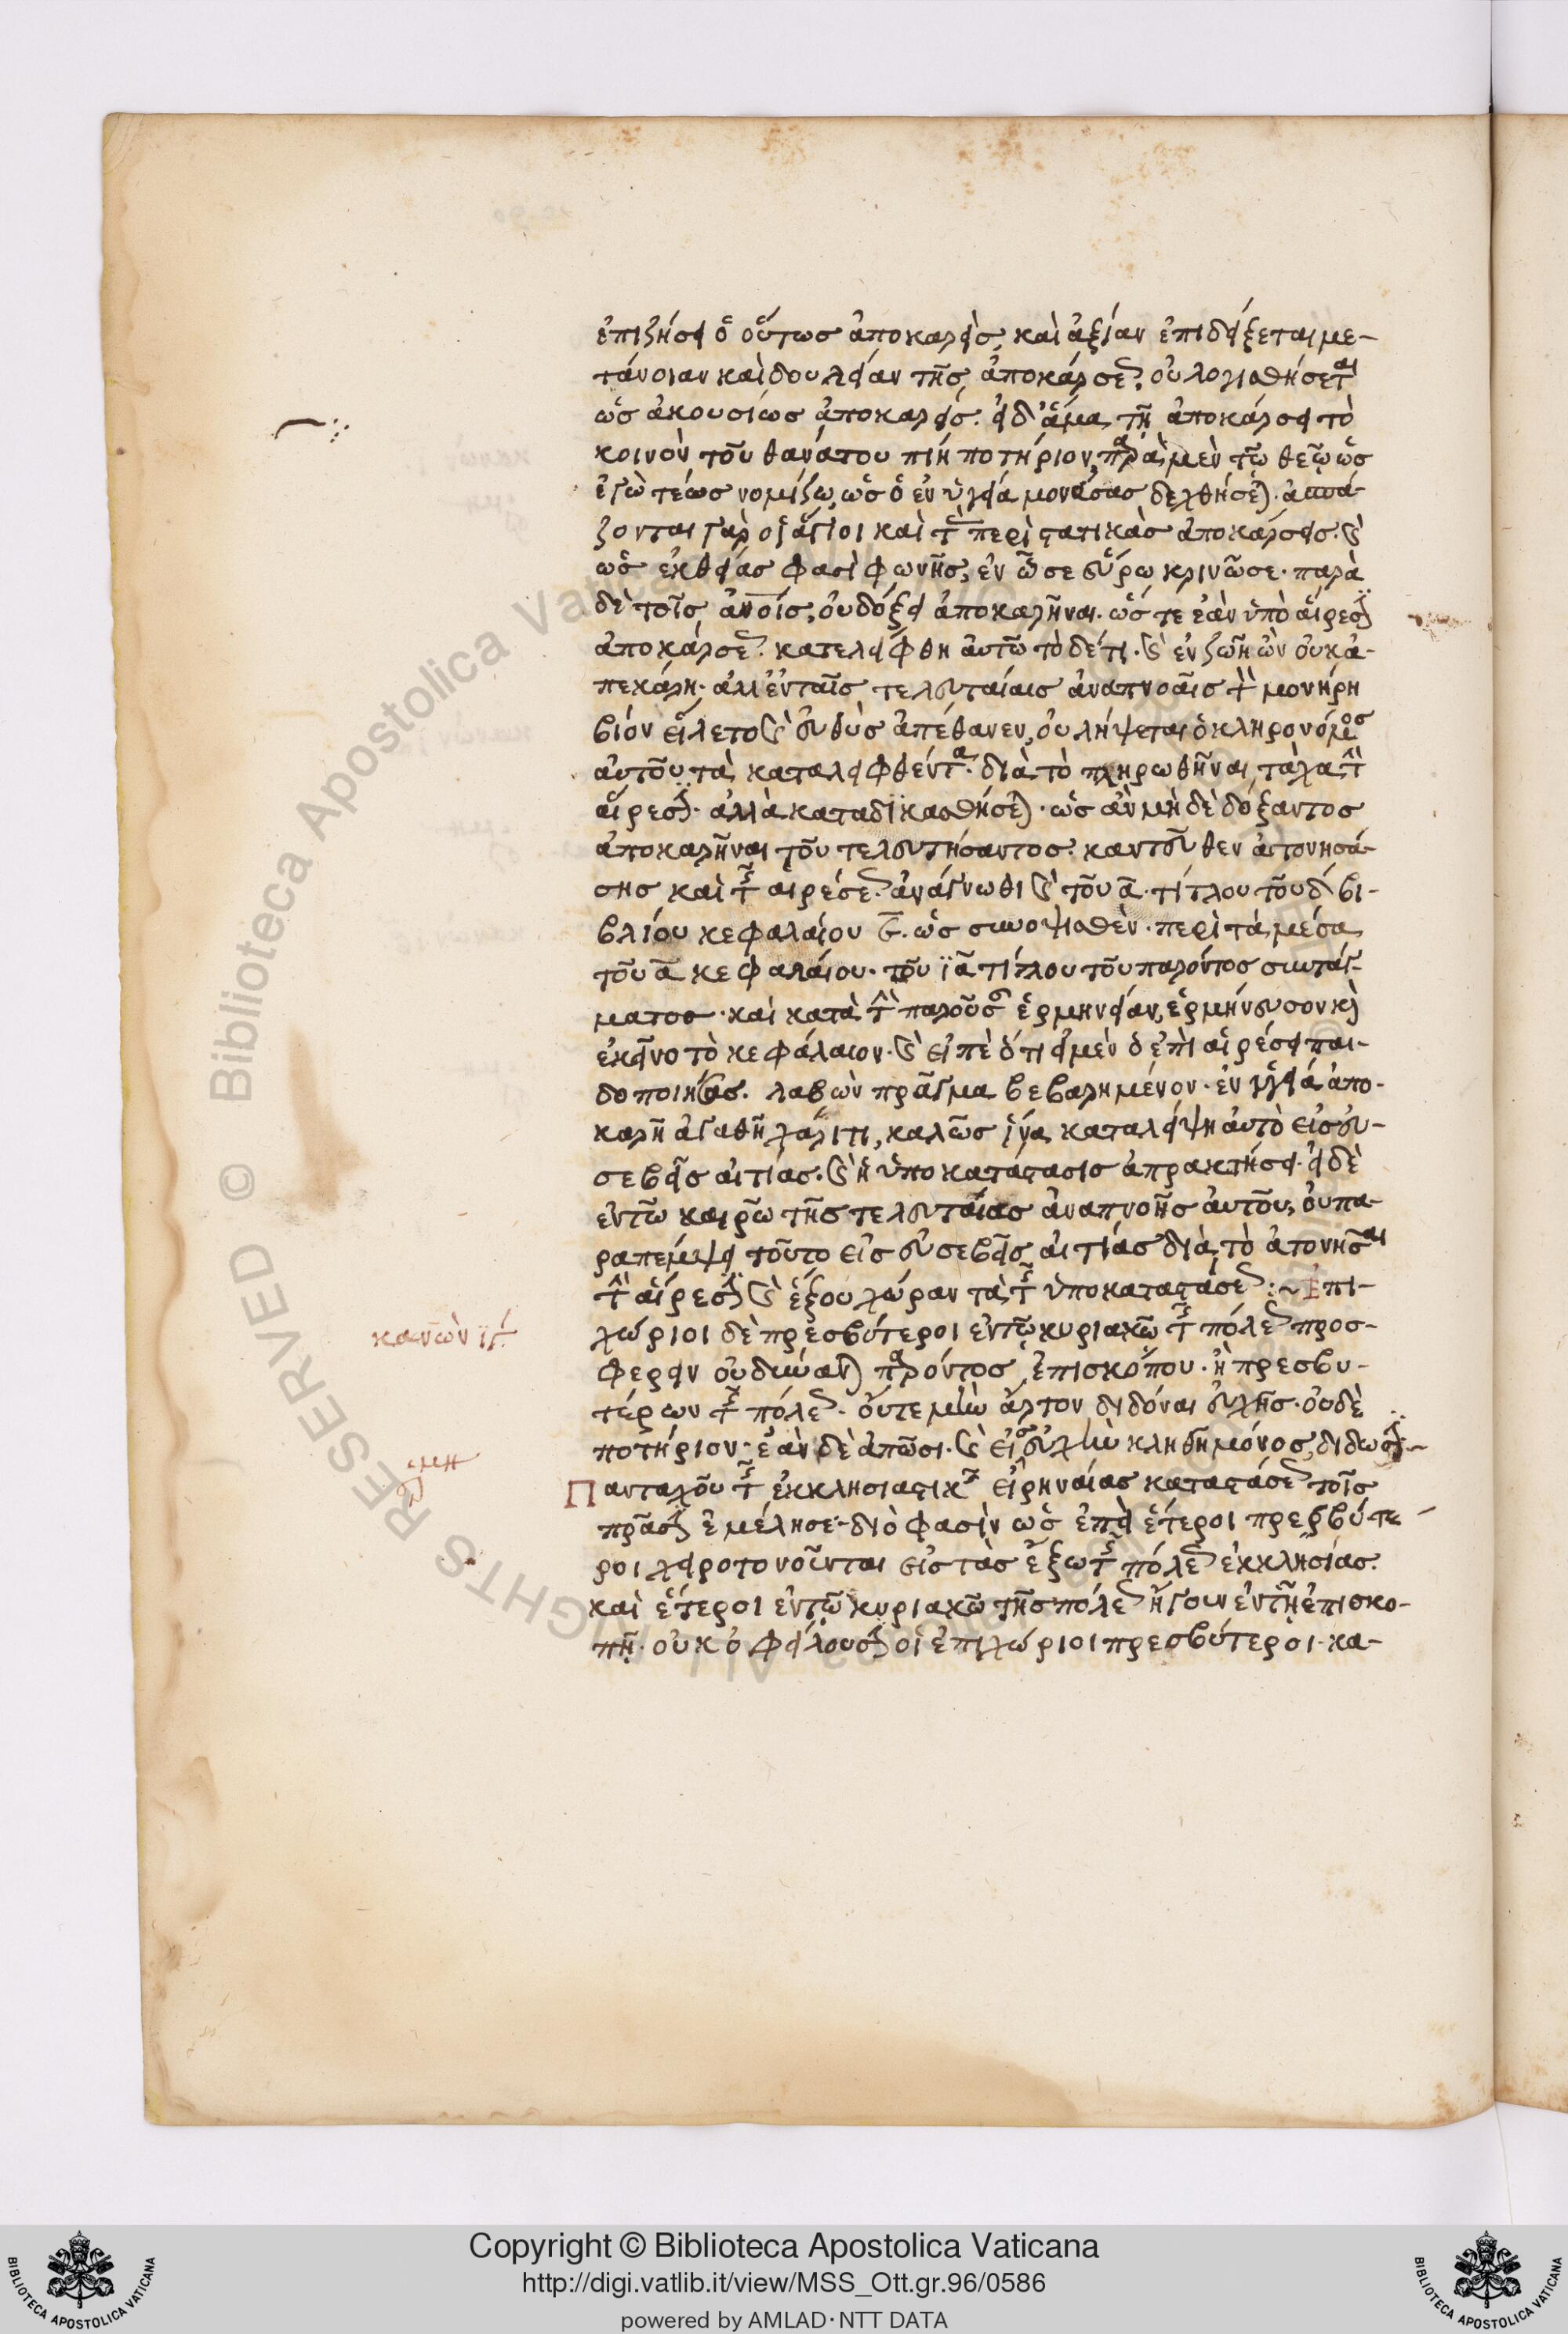 ἐπιζήσει ὁ οὕτως ἀποκαρεὶς, καὶ ἀξίαν ἐπιδείξεται με-
τάνοιαν καὶ δουλείαν τῆς ἀποκάρσεως, οὐ λογισθήσεται
ὡς ἀκουσίως ἀποκαρείς. εἰ δ' ἅμα τῇ ἀποκάρσει τὸ
κοινὸν τοῦ θανάτου πίῃ ποτήριον, παρὰ μὲν τῶ θεῶ ὡς
ἐγὼ τέως νομίζω, ὡς ὁ ἐν ὑγεία μονάσας δεχθήσεται. ἁγιά-
ζονται γὰρ οἱ ἅγιοι καὶ τὰς περιστατικὰς ἀποκάρσεις. καὶ
ὡς ἐκ θείας φασὶ φωνῆς, ἐν ὧ σε εὕρω κρινῶ σε. παρὰ
δὲ τοῖς ἀνοις, οὐ δόξει ἀποκαρῆναι. ὥστε ἐὰν ὑπὸ αἵρεσιν
ἀποκάρσεως κατελείφθη αὐτῶ τὸ δέ τι. καὶ ἐν ζωῆ ὢν οὐκ ἀ-
πεκάρη. ἀλλ' ἐν ταῖς τελευταίαις ἀναπνοαῖς τὸν μονήρη
βίον εἵλετο καὶ εὐθὺς ἀπέθανεν, οὐ λήψεται ὁ κληρονόμος
αὐτοῦ τὰ καταλειφθέντα. διὰ τὸ πληρωθῆναι τάχα τὴν
αἵρεσιν. ἀλλὰ καταδικασθήσεται. ὡς ἂν μὴ δὲ δόξαντος
ἀποκαρῆναι τοῦ τελευτήσαντος. καντεῦθεν ἀτονησά-
σης καὶ τῆς αἱρέσεως. ἀνάγνωθι καὶ τοῦ α. τίτλου τοῦ δ βι-
βλίου κεφαλαίου ϛ. ὡς συνοψισθὲν. περὶ τὰ μέσα
τοῦ α κεφαλαίου. τοῦ ια τίτλου τοῦ παρόντος συντάγ-
ματος. καὶ κατὰ τὴν παροῦσαν ἑρμηνείαν, ἑρμήνευσον καὶ
ἐκεῖνο τὸ κεφάλαιον. καὶ εἰπὲ ὅτι εἰ μὲν ὁ ἐπὶ αἱρέσει παι-
δοποιήσας. λαβὼν πρᾶγμα βεβαρημένον. ἐν ὑγεία ἀπο-
καρῆ ἀγαθῆ χάριτι, καλῶς ἵνα καταλείψη αὐτὸ εἰς εὐ-
σεβεῖς αἰτίας. καὶ ἡ ὑποκατάστασις ἀπρακτήσει. εἰ δὲ
ἐν τῶ καιρῶ τῆς τελευταίας ἀναπνοῆς αὐτοῦ, οὐ πα-
ραπέμψει τοῦτο εἰς εὐσεβεῖς αἰτίας διὰ τὸ ἀτονῆσαι
τὴν αἵρεσιν καὶ ἕξουσι χώραν τὰ τῆς ὑποκαταστάσεως :~ Ἐπι-
κανὼν ιγ
χώριοι δὲ πρεσβύτεροι ἐν τῶ κυριακῶ τῆς πόλεως προσ-
φέρειν οὐ δύνανται παρόντος ἐπισκόπου. ἢ πρεσβυ-
τέρων τῆς πόλεως. οὔτε μὴν ἄρτον διδόναι εὐχῆς. οὐδὲ
ποτήριον. ἐὰν δὲ ἀπῶσι. καὶ εἰς εὐχὴν κληθῆ μόνος, δίδωσιν:~
ἑρμη
Πανταχοῦ τῆς ἐκκλησιαστικῆς εἰρηναίας καταστάσεως τοῖς
πράσιν ἐμέλησε. διὸ φασὶν ὡς ἐπεὶ ἕτεροι πρεσβύτε
ροι χειροτονοῦνται εἰς τὰς ἔξω τῆς πόλεως ἐκκλησίας.
καὶ ἕτεροι ἐν τῶ κυριακῶ τῆς πόλεως ἤγουν ἐν τῆ ἐπισκο-
πῆ. οὐκ ὀφείλουσιν οἱ ἐπιχώριοι πρεσβύτεροι. κα-
Copyright © Biblioteca Apostolica Vaticana
http://digi.vatlib.it/view/MSS_Ott.gr.96/0586
powered by AMLAD·NTT DATA